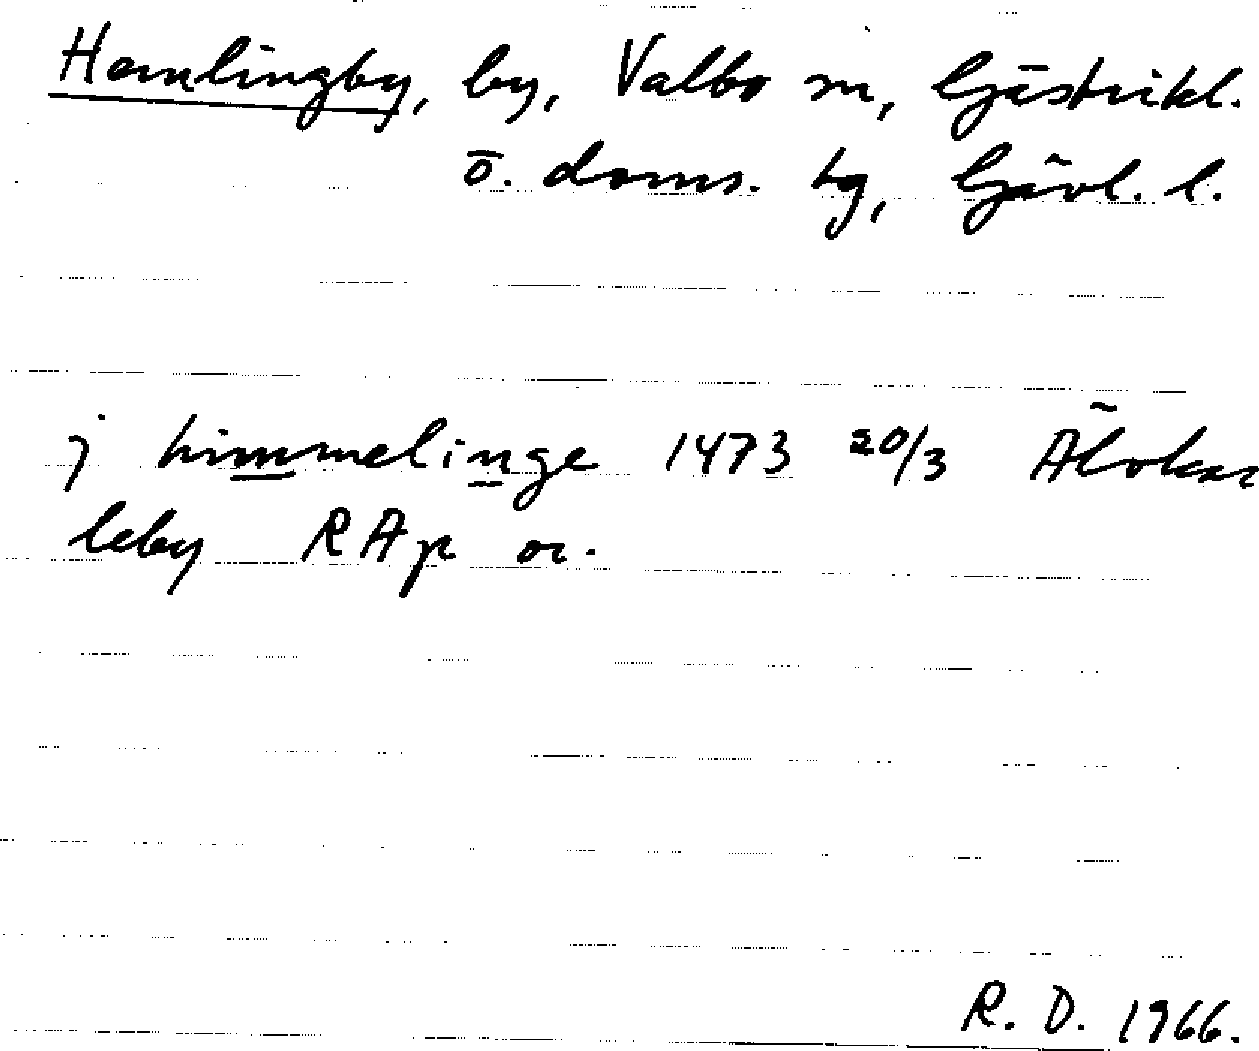 Hemlingby, by, Valbo sn, Gästrikl.
ö. doms. tg, Gävl. l.
j himmelinge 1473 20/3 Älvkar
leby RAp or.
R. D. 1966.